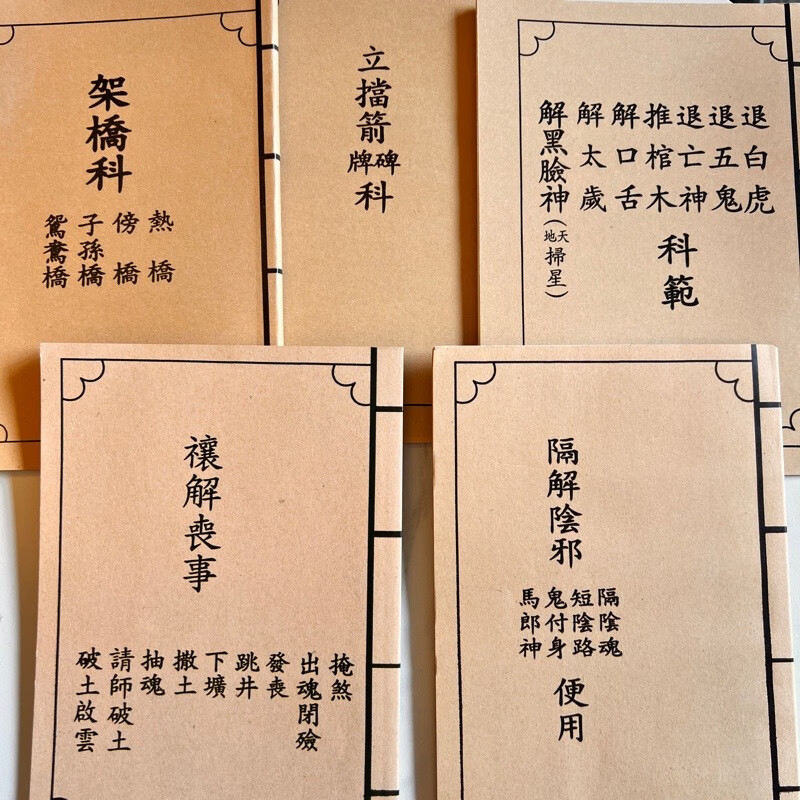 架橋科
熱橋
傍橋
子孫橋
鴛鴦橋
立擋箭碑牌科
退白虎
退五鬼
退亡神
推棺木
解口舌
解太歲
解黑臉神(天地掃星)
科範
禳解喪事
掩煞
出魂閉殮
發喪
跳井
下壙
撒土
抽魂
請師破土
破土啟雲
隔解陰邪
隔陰魂
短陰路
鬼付身
馬郎神
便用